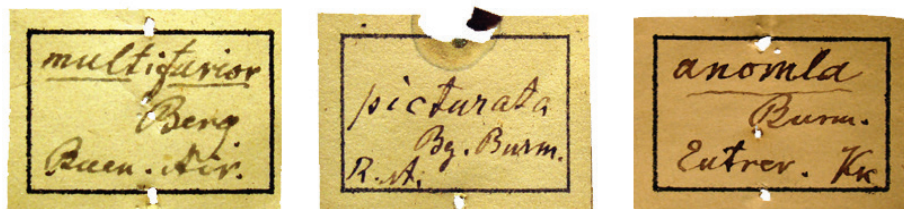 multifarior
Berg
Buen. Air.
picturata
Bg. Burm.
R. A.
anomla
Burm.
Entrer. Kk